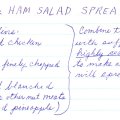 HAM SALAD SPREA
d chicken
finely chopped
d blanched
other nut meats
d pineapple)
Combine t
with suff
highly se
to make a
will sprea